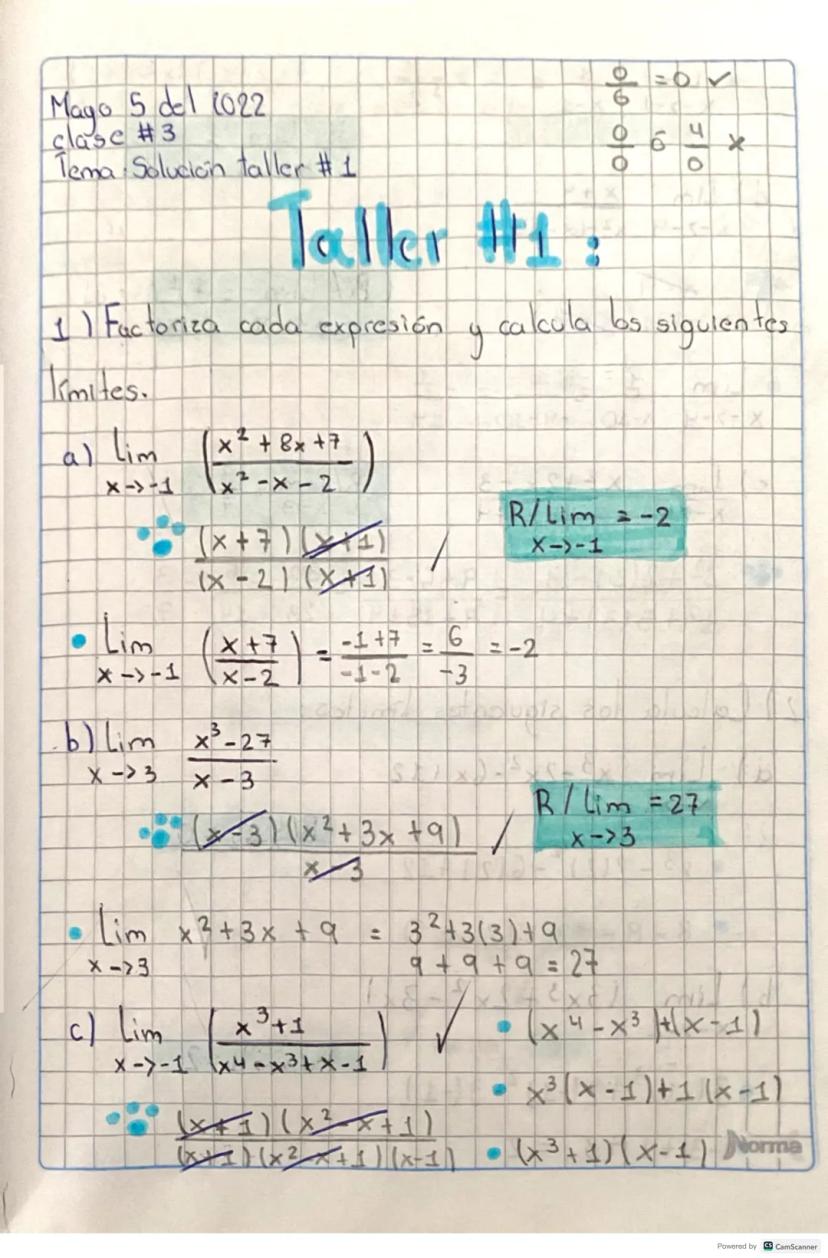 Mayo 5 del 2022
clase #3
Tema: Solución taller #1
0/6 = 0 ✓
0/0 ó 4/0 x
Taller #1:
1) Factoriza cada expresión y calcula los siguientes
límites.
a) Lim x->-1 (x² + 8x + 7 / x² - x - 2)
(x + 7)(x+1) / (x - 2)(x+1)
R/ Lim x->-1 = -2
• Lim x->-1 (x + 7 / x - 2) = -1+7 / -1-2 = 6 / -3 = -2
b) Lim x->3 x³ - 27 / x - 3
(x-3)(x² + 3x + 9) / x-3
R/ Lim x->3 = 27
• Lim x->3 x² + 3x + 9 = 3² + 3(3) + 9
9 + 9 + 9 = 27
c) Lim x->-1 (x³ + 1 / x4 - x³ + x - 1) ✓
• (x4 - x³) + (x - 1)
• x³(x - 1) + 1(x - 1)
(x+1)(x² - x + 1) / (x+1)(x² - x + 1)(x-1)
• (x³ + 1)(x - 1)
Norma
Powered by CS CamScanner